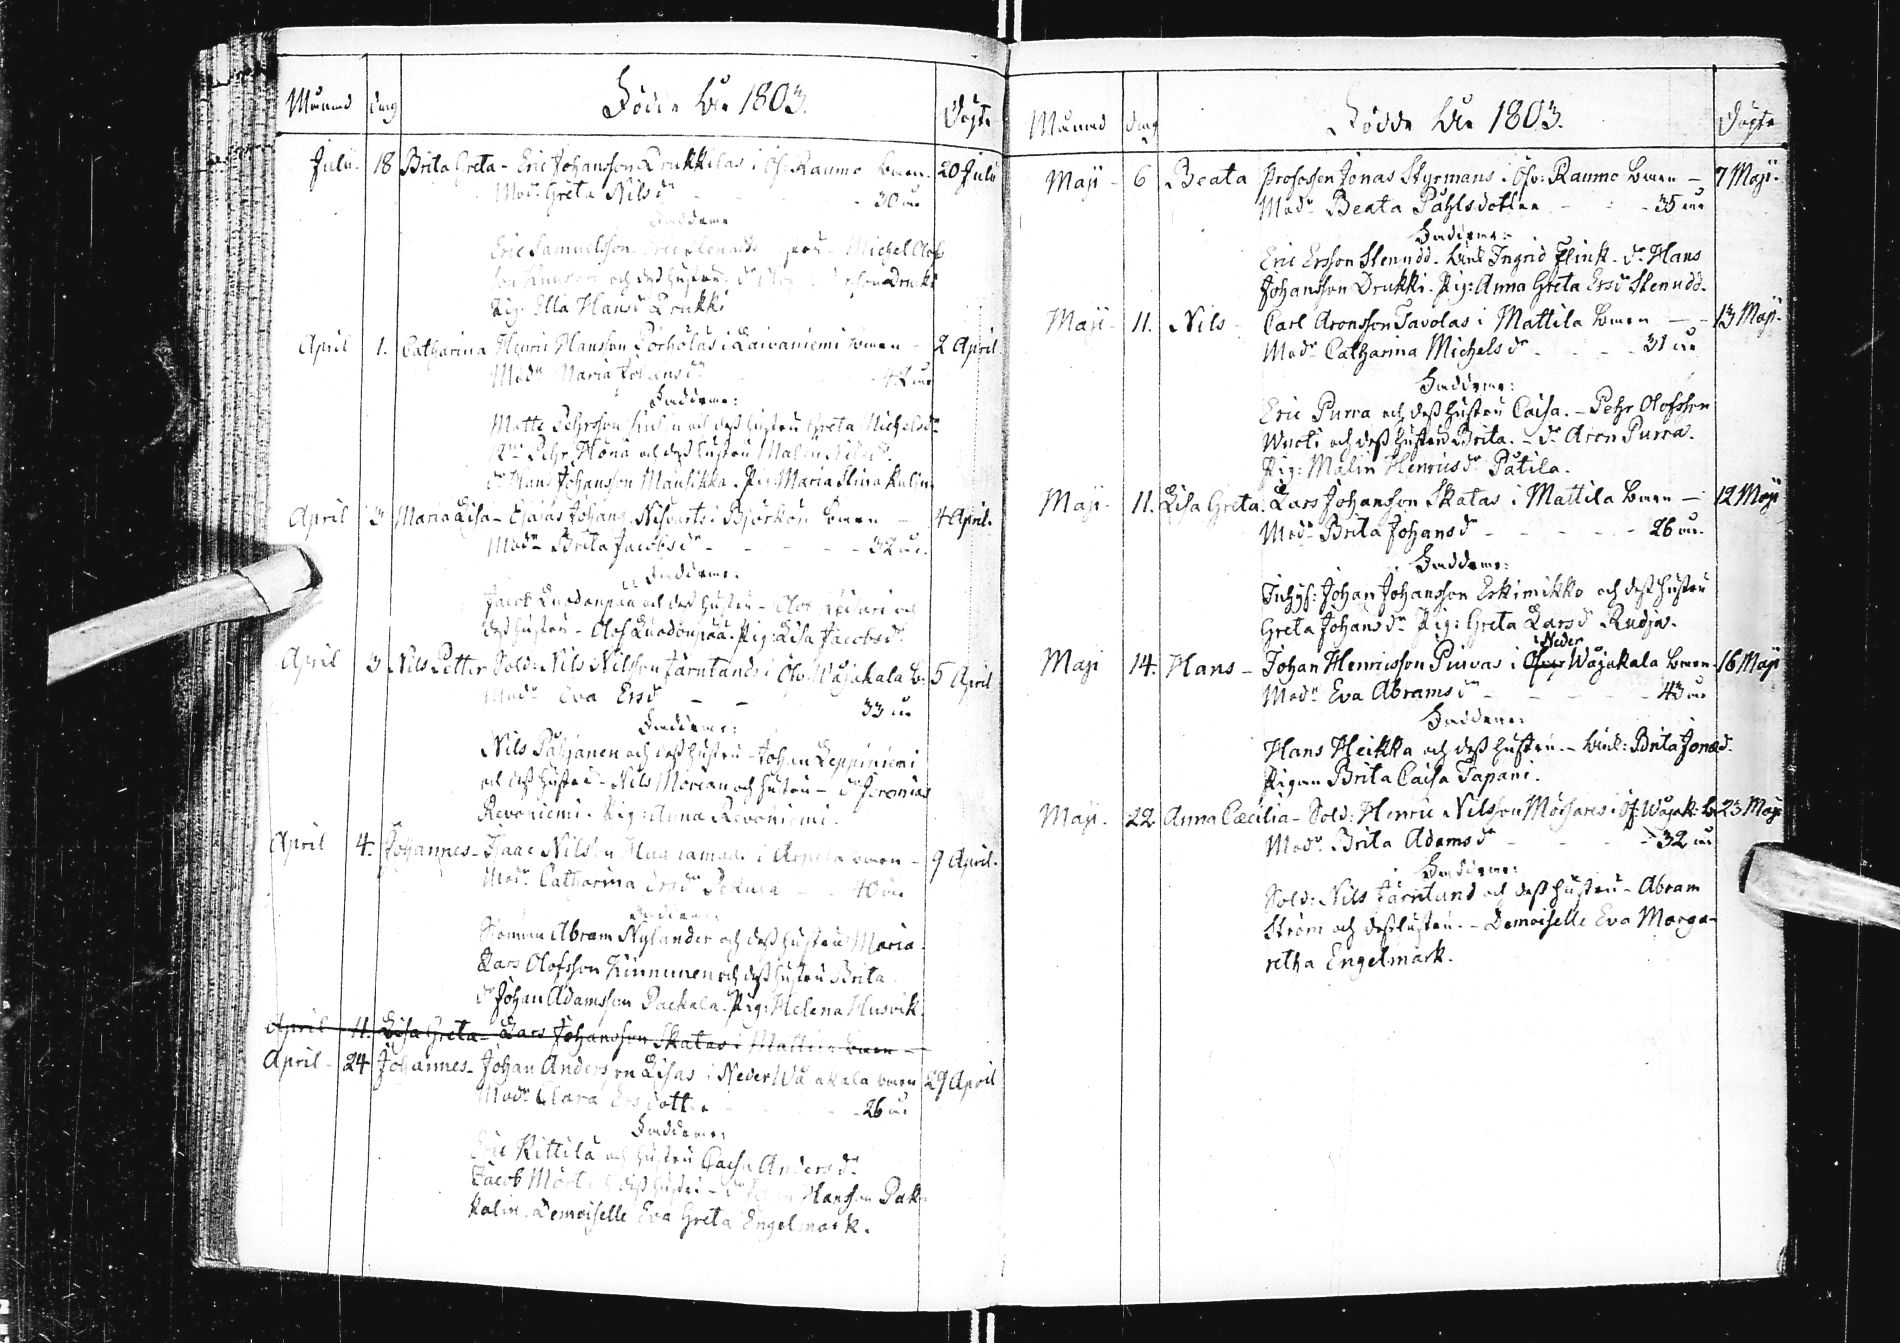 Månad dag Födde år 1803. Döpte
Julii. 18 Brita Greta - Eric Johansson Drukkilas i Öf. Raumo barn. 20 Julii
Mod: Greta Nilsdr - 30 år
Faddrar
Eric Samuelsson Michel Olof
son och dess hustru Drukki
Pig: Ella Hansdr Drukki
April 1. Catharina Henric Hansson Pörhöläs i Laivaniemi barn - 2 April.
Modr Maria Johansdr 42 år
Faddrar:
Matts Pehrsson och dess hustru Greta Michelsdr
Pehr Hona och dess hustru Malin
dr Hans Johansson Mausikka. Pig: Maria Stina Kulin.
April 3 Maria Lisa - Esaias Johans i Björkön barn - 4 April.
Modr Brita Jacobsdr - - - - 32 år.
Faddrar.
Jacob Luodonpää och dess hustru - Olof och
dess hustru - Olof Luodonpää. Pig: Lisa Jacobsdr.
April 3 Nils Petter Sold: Nils Nilsson Järnlands i Öfv Wojakala b: 5 April
Modr Eva Ersdr - - 33 år
Faddrar:
Nils Päijänen och dess hustru - Johan Leppiniemi
och dess hustru - Nils Morian och hustru - dr Jeremias
Revoniemi. Pig: Anna Revoniemi.
April 4. Johannes - Isaac Nilsson i Arpela barn - 9 April.
Modr Catharina Ersdr Pekkala - - 40 år
Faddrar
Abram Nylander och dess hustru Maria.
Lars Olofsson Kinnunen och dess hustru Brita.
dr Johan Adamsson Packala. Pig: Helena Husvik.
April 11. Lisa Greta - Lars Johansson Skatas i Mattila barn -
April - 24 Johannes - Johan Andersson Lisas i Neder Wojakala barn 29 April
Modr Clara Ersdotter - 26 år
Faddrar:
Eric Kittilä och hustru Caisa Andersdr
Jacob Mört och dess hustru - dr Hansson Pak-
kalin. Demoiselle Eva Greta Engelmark.
Månad dag Födde år 1803. Döpte
Maji - 6 Beata Profossen Jonas Styrmans i Öfv: Raumo barn - 7 Maji.
Modr Beata Påhlsdotter - - - 35 år
Faddrar:
Eric Ersson Stenudd. Enk: Ingrid Flink. dr Hans
Johansson Drukki. Pig: Anna Greta Ersdr Stenudd.
Maji - 11. Nils - Carl Aronsson Tavolas i Mattila barn - - 13 Maji.
Modr Catharina Michelsdr - - - 31 år
Faddrar:
Eric Purra och dess hustru Caisa. - Pehr Olofsson
Wuoti och dess hustru Brita. - dr Aron Purra.
Pig: Malin Henricsdr Pätilä.
Maji - 11. Lisa Greta. Lars Johansson Skatas i Mattila barn - 12 Maji
Modr Brita Johansdr - - - - 26 år.
Faddrar:
Inhys: Johan Johansson Eskimikko och dess hustru
Greta Johansdr Pig: Greta Larsdr Rudja.
Neder
Maji 14. Hans - Johan Henricsson Puivas i Öfver Wojakala barn - 16 Maji
Modr Eva Abramsdr - - - - 43 år
Faddrar:
Hans Heikka och dess hustru. - Enk: Brita Jonsd.
Pigan Brita Caisa Tapani.
Maji - 22 Anna Cæcilia - Sold: Henric Nilsson Mörhares i Öf. Wojak: b. 23 Maji
Modr Brita Adamsdr - - - 32 år
Faddrar:
Sold: Nils Järnland och dess hustru - Abram
Ström och dess hustru. - Demoiselle Eva Marga-
retha Engelmark.